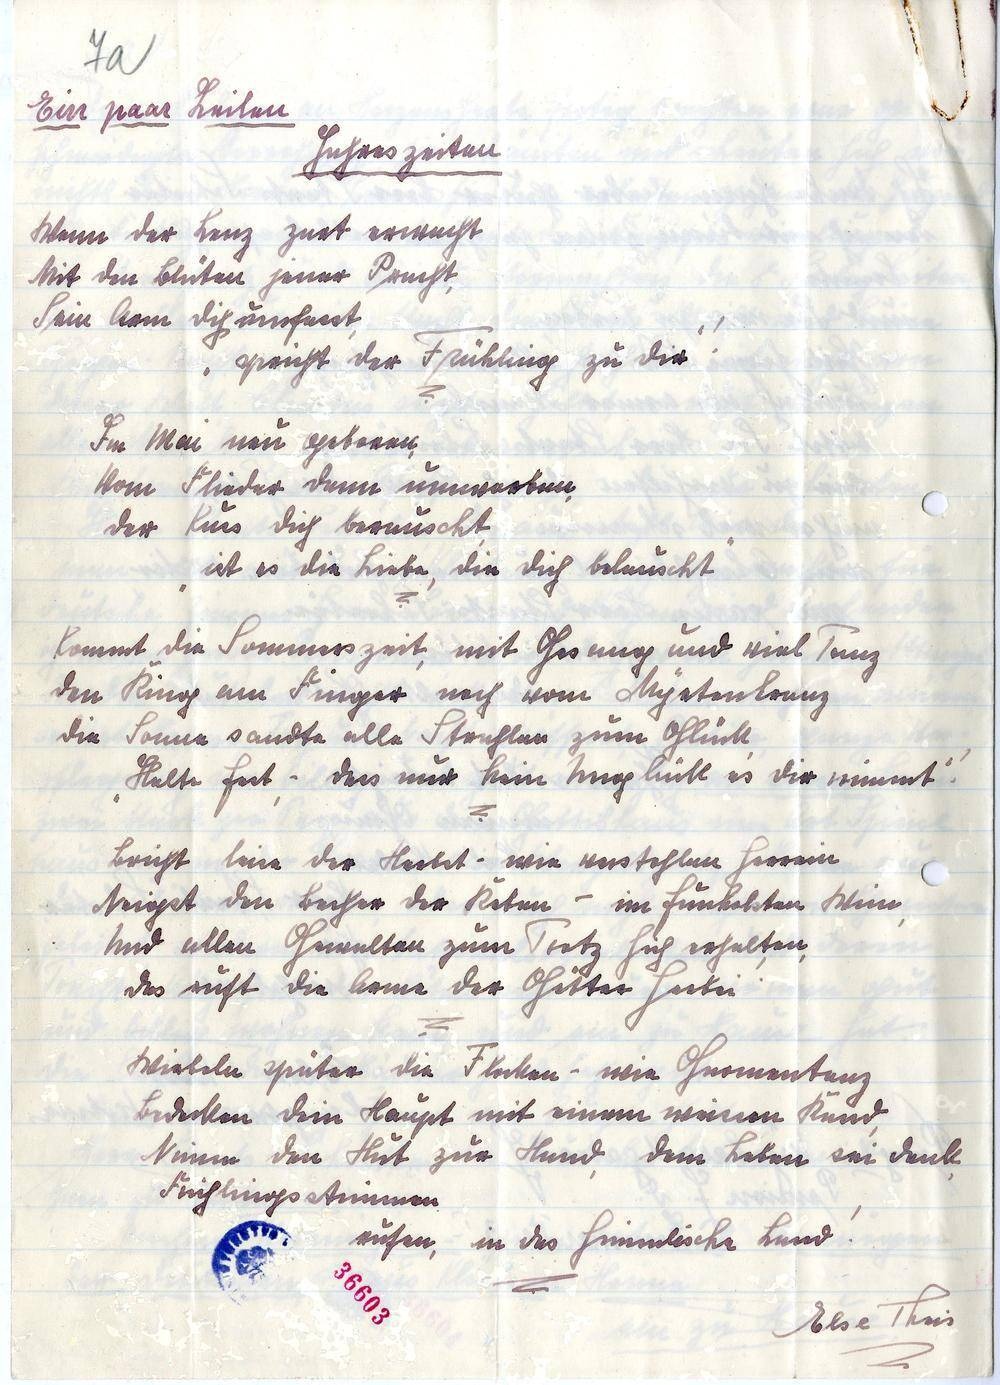 7a
Ein paar Zeilen
Jahreszeiten
Wenn der Lenz zart erwacht
Mit den Blüten jener Pracht,
Sein Arm dich umfasst,
„ spricht der Frühling zu dir"!
Im Mai neu geboren,
Vom Flieder dann umworben,
der Kuss dich berauscht,
„ ist es die Liebe, die dich belauscht"
Kommt die Sommerszeit, mit Gesang und viel Tanz
den Ring am Finger noch vom Myrtenkranz
die Sonne sandte alle Strahlen zum Glück,
„Halte fest, - dass nur kein Unglück es dir nimmt"!
Bricht leise der Herbst - wie verstohlen herrein
Neigst den Becher der Reben - im funkelsten Wein,
Und allen Gewalten zum Trotz sich erhalten,
das ruft die Arme der Götter herbei
Wirbeln später die Flocken - wie Gnomentanz
Bedecken dein Haupt mit einem weissen Rand,
Nimm den Hut zur Hand, dem Leben sei dank,
Frühlingsstimmen
rufen, in das himmlische Land!
36603
Else Theis